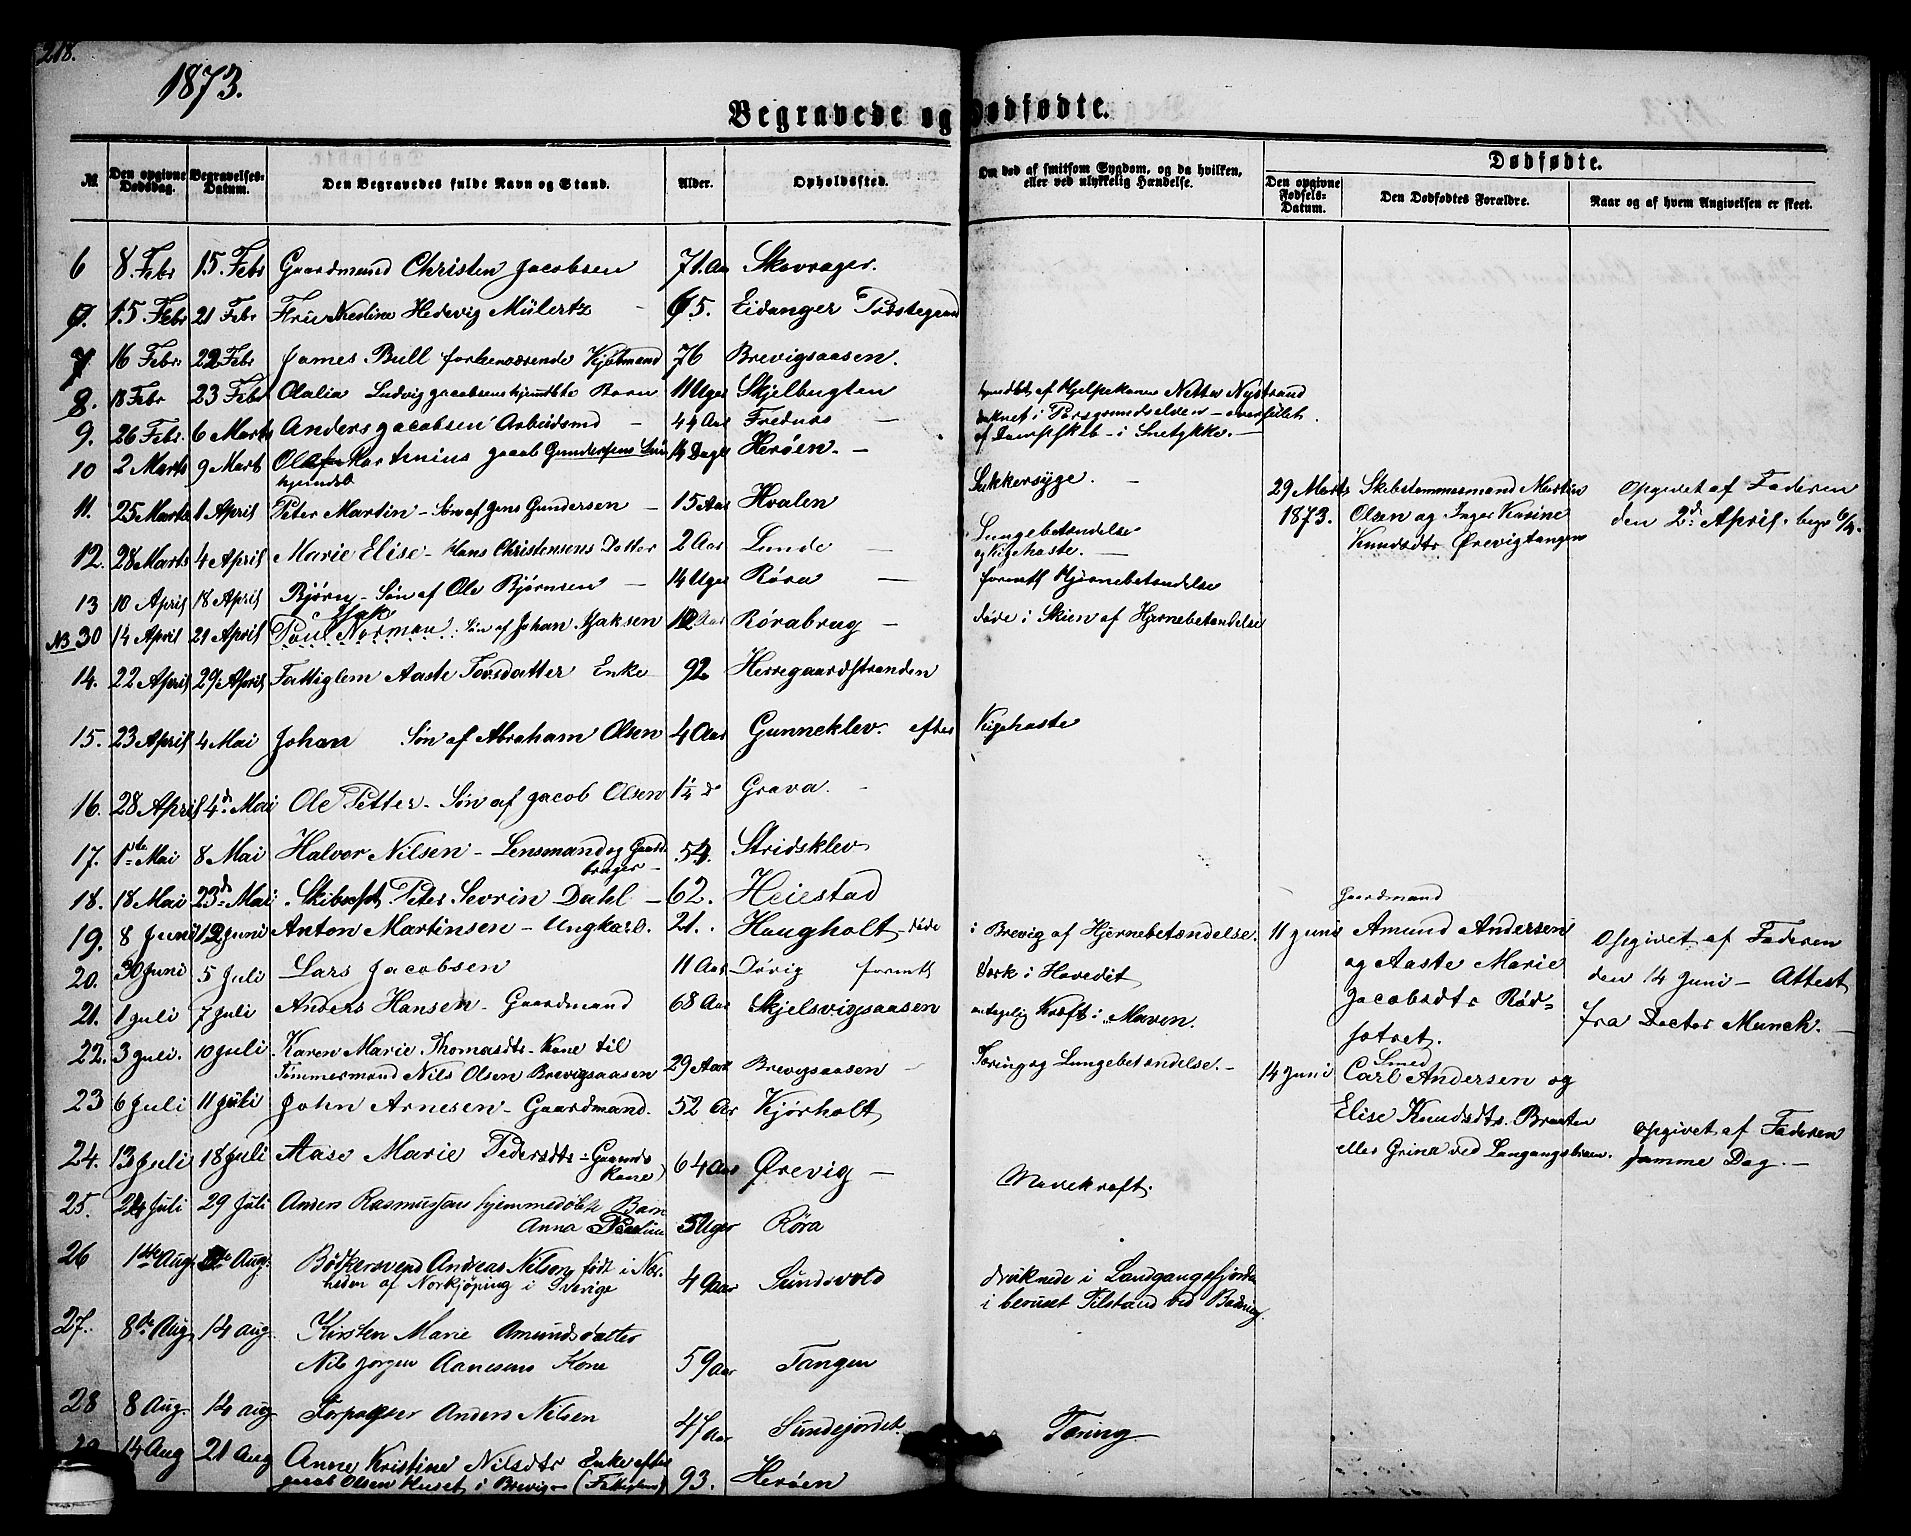 218.
1873.
Begravede og Dødfødte.
№ Den opgivne Dødsdag. Begravelses-Datum. Den Begravedes fulde Navn og Stand. Alder. Opholdssted. Om død af smitsom Sygdom, og da hvilken, eller ved ulykkelig Hændelse.
Dødfødte.
Den opgivne Fødsels-Datum. Den Dødfødtes Forældre. Naar og af hvem Angivelsen er skeet.
6 8. Febr 15. Febr Gaardmand Christen Jacobsen 71. Aar Skavrager.
15. Febr 21 Febr Frue Hedevig Mülertz 65. Eidanger Præstegaard
7 16 Febr. 22 Febr James Bull forhenværende Kjøbmand 76 Brevigsaasen.
8. 18 Febr 23 Febr Olalia Ludvig Jacobsens hjemdøbte Barn 11 Uger Skjelbugten
9. 26 Febr. 6 Marts Anders Jacobsen Arbeidsmd 44 Aar Frednæs — druknet i Porsgrundselven — overseilet
af Dampskib — i Snetykke. —
10 2 Marts 9 Marts Olaf Martinius Jacob Gundersens Søn 14 Dage Herøen. —
hjemdøb
11. 25 Marts 1 April Peter Martin — Søn af Jens Gundersen — 15 Aar Hvalen Sukkersyge. —
29 Marts 1873. Skibstømmermand Martin
Olsen og Inger Karine
Knudsdtr Ørevigtangen
Opgivet af Faderen
den 2d. April. begr 6/4.
12. 28 Marts 4 April Marie Elise — Hans Christensens Datter 2 Aar Lunde — Lungebetændelse
og Kighoste. —
13 10 April 18 April Bjørn — Søn af Ole Bjørnsen — 14 Uger Røra — forment Hjernebetændelse
NB 30 14 April 21 April Poul Norman: Søn af Johan Isaksen 12 Aar Rørabrug — døde i Skien af Hjernebetændelse
Isak
14. 22 April 29 April Fattiglem Aaste Torsdatter Enke 92 Herregaardsstranden
15. 23 April 4 Mai Johan Søn af Abraham Olsen 4 Aar Gunneklev. efter Kighoste
16. 28 April 4d. Mai Ole Petter — Søn af Jacob Olsen 1¼ d Grava.
17. 1ste Mai 8 Mai Halvor Nilsen — Lensmand og Gaard-
bruger — 54. Stridsklev
18. 18 Mai 23d. Mai Skibscpt Peter Sevrin Dahl — 62. Heiestad
19. 8 Juni 12 Juni Anton Martinsen — Ungkarl. 21. Haugholt — døde i Brevig af Hjernebetændelse.
11 Juni Gaardmand
Amund Andersen
og Aaste Marie
Jacobsdtr Rød-
Opgivet af Faderen
den 14 Juni — Attest
fra Doctor Munck. —
20. 30 Juni 5 Juli Lars Jacobsen 11 Aar Dørig forment Værk i Hovedit
21. 1 Juli 7 Juli Anders Hansen — Gaardmand 68 Aar Skjelsvigsaasen antagelig Kræft i Maven.
22. 3 Juli. 10 Juli Karen Marie Thomasdtr — Kone til
Tømmermand Nils Olsen Brevigsaasen 29 Aar Brevigsaasen — Tæring og Lungebetændelse. —
14 Juni Smed
Carl Andersen og
Elise Knudsdtr. Braaten
eller Grina ved Langangsbraen.
Opgivet af Faderen
samme Dag. —
23 6 Juli 11 Juli John Arnesen — Gaardmand. 52 Aar Kjørholt
24. 13 Juli 18 Juli Aase Marie Pedersdtr — Gaarmds
Kone) 64 Aar Ørevig — Mavekræft.
25. 24 Juli 29 Juli Anders Rasmussens hjemmedøbte Barn
Anna 5 Uger Røra
26 1ste Aug. Aug. Bødkersvend Andreas Nilson, født i Nær-
heden af Norkjøping i Sverige 49 Aar Sundsvold druknede i Landgangsfjorden
i beruset Tilstand ved Badning.
27. 8de Aug. 14 Aug. Kirsten Marie Amundsdatter
Nils Jørgen Aanesens Kone 59 Aar Tangen
28 8 Aug. 14 Aug Forpagter Anders Nilsen 47 Aar Sundejordet. Tæring.
14 Aug 21 Aug Anne Kristine Nilsdtr Enke efter
Jacob Olsen Huset i Brevig — (Fattiglem) 93. Herøen